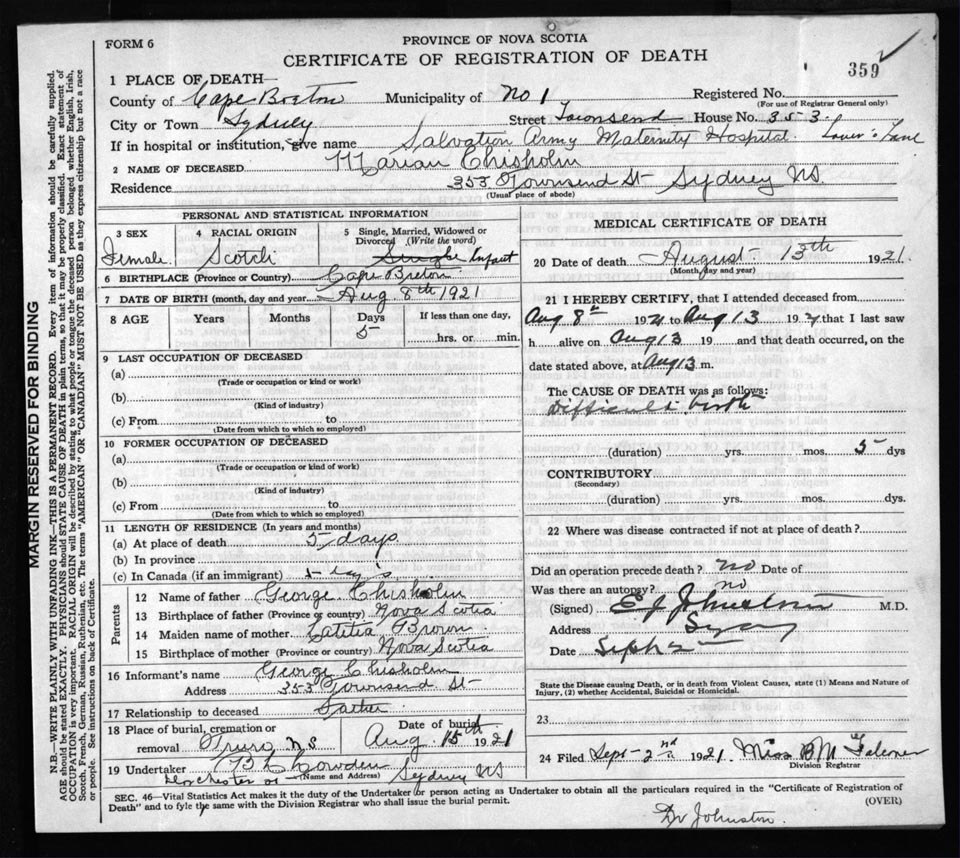 FORM 6
PROVINCE OF NOVA SCOTIA
CERTIFICATE OF REGISTRATION OF DEATH
359
1 PLACE OF DEATH—
County of Cape Breton Municipality of No 1 Registered No.
(For use of Registrar General only)
City or Town Sydney Street Townsend House No. 353
If in hospital or institution, give name Salvation Army Maternity Hospital. Lover's Lane
2 NAME OF DECEASED Marian Chisholm
Residence 353 Townsend St Sydney NS.
(Usual place of abode)
PERSONAL AND STATISTICAL INFORMATION
3 SEX Female
4 RACIAL ORIGIN Scotch
5 Single, Married, Widowed or Divorced (Write the word) Single Infant
6 BIRTHPLACE (Province or Country) Cape Breton
7 DATE OF BIRTH (month, day and year) Aug. 8th 1921
8 AGE Years Months Days If less than one day,
5 hrs. or min.
9 LAST OCCUPATION OF DECEASED
(a)
(Trade or occupation or kind or work)
(b)
(Kind of industry)
(c) From to
(Date from which to which so employed)
10 FORMER OCCUPATION OF DECEASED
(a)
(Trade or occupation or kind or work)
(b)
(Kind of industry)
(c) From to
(Date from which to which so employed)
11 LENGTH OF RESIDENCE (In years and months)
(a) At place of death 5 days
(b) In province
(c) In Canada (if an immigrant)
Parents
12 Name of father George Chisholm
13 Birthplace of father (Province or country) Nova Scotia
14 Maiden name of mother Letitia Brown
15 Birthplace of mother (Province or country) Nova Scotia
16 Informant's name George Chisholm
Address 353 Townsend St
17 Relationship to deceased Father
18 Place of burial, cremation or removal Truro NS
Date of burial Aug. 15th 1921
19 Undertaker Cowden
(Name and Address) Dorchester Sydney NS
MEDICAL CERTIFICATE OF DEATH
20 Date of death August 13th 1921.
(Month, day and year)
21 I HEREBY CERTIFY, that I attended deceased from
Aug 8th 1921 to Aug 13 192 that I last saw
h alive on Aug 13 19 and that death occurred, on the
date stated above, at Aug 13 m.
The CAUSE OF DEATH was as follows:
Difficult birth
(duration) yrs. mos. 5 dys
CONTRIBUTORY
(Secondary)
(duration) yrs. mos. dys.
22 Where was disease contracted if not at place of death?
Did an operation precede death? no Date of
Was there an autopsy? no
(Signed) E J Johnston M.D.
Address Sydney
Date Sept 2
State the Disease causing Death, or in death from Violent Causes, state (1) Means and Nature of
Injury, (2) whether Accidental, Suicidal or Homicidal.
23
24 Filed Sept 2nd 1921. Miss B M Falconer
Division Registrar
SEC. 46—Vital Statistics Act makes it the duty of the Undertaker or person acting as Undertaker to obtain all the particulars required in the "Certificate of Registration of
Death" and to fyle the same with the Division Registrar who shall issue the burial permit.
(OVER)
Dr Johnston.
MARGIN RESERVED FOR BINDING
N.B.—WRITE PLAINLY WITH UNFADING INK—THIS IS A PERMANENT RECORD. Every item of information should be carefully supplied.
AGE should be stated EXACTLY. PHYSICIANS should STATE CAUSE OF DEATH in plain terms, so that it may be properly classified. Exact statement of
OCCUPATION is very important. RACIAL ORIGIN will be described by stating to what people or tongue the deceased person belonged, whether English, Irish,
Scotch, French, German, Russian, Ruthenian, etc. The terms "AMERICAN" OR "CANADIAN" MUST NOT BE USED as they express citizenship but not a race
or people. See instructions on back of Certificate.